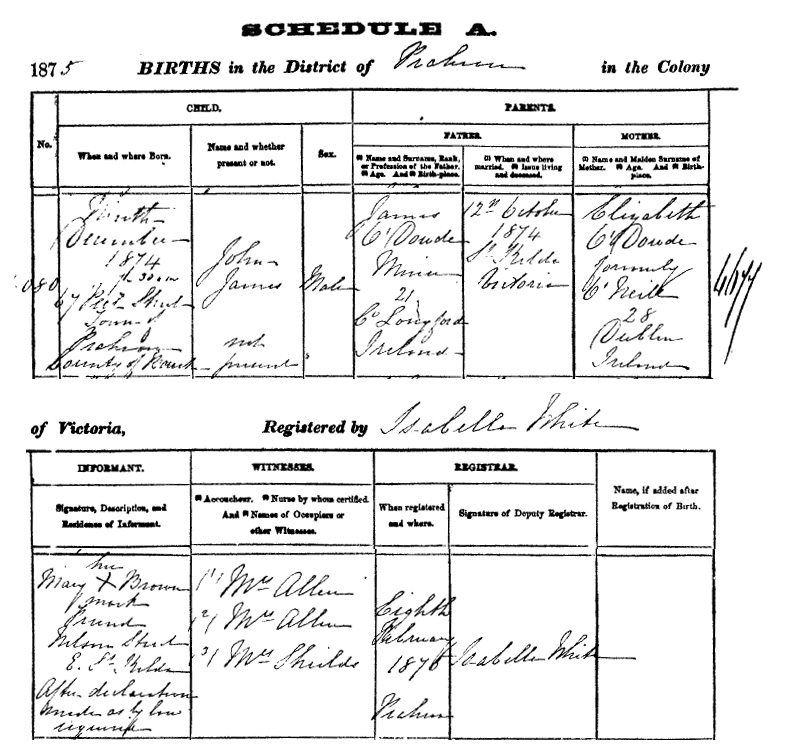 SCHEDULE A.
1875 BIRTHS in the District of Prahran in the Colony
CHILD. PARENTS.
No. When and where Born. Name and whether present or not. Sex. FATHER. MOTHER.
(1) Name and Surname, Rank, or Profession of the Father. (2) Age. And (3) Birth-place.
(1) When and where married. (2) Issue living and deceased.
(1) Name and Maiden Surname of Mother. (2) Age. And (3) Birth-place.
Ninth
December
1874
67 Peel Street
Town of
Prahran
County of Bourke
John
James
not
present
Male
James
O'Dowde
Miner
21
Co Longford
Ireland
12th October
1874
St Kilda
Victoria
Elizabeth
O'Dowde
formerly
O'Neill
28
Dublin
Ireland
of Victoria, Registered by Isabella White
INFORMANT. WITNESSES. REGISTRAR. Name, if added after Registration of Birth.
Signature, Description, and Residence of Informant.
(1) Accoucheur. (2) Nurse by whom certified. And (3) Names of Occupiers or other Witnesses.
When registered and where.
Signature of Deputy Registrar.
her
Mary X Brown
mark
Friend
Nelson Street
E. St Kilda
After declaration
made as by law
required
1/ Mrs Allen
2/ Mrs Allen
3/ Mrs Shields
Eighth
February
1876
Prahran
Isabella White